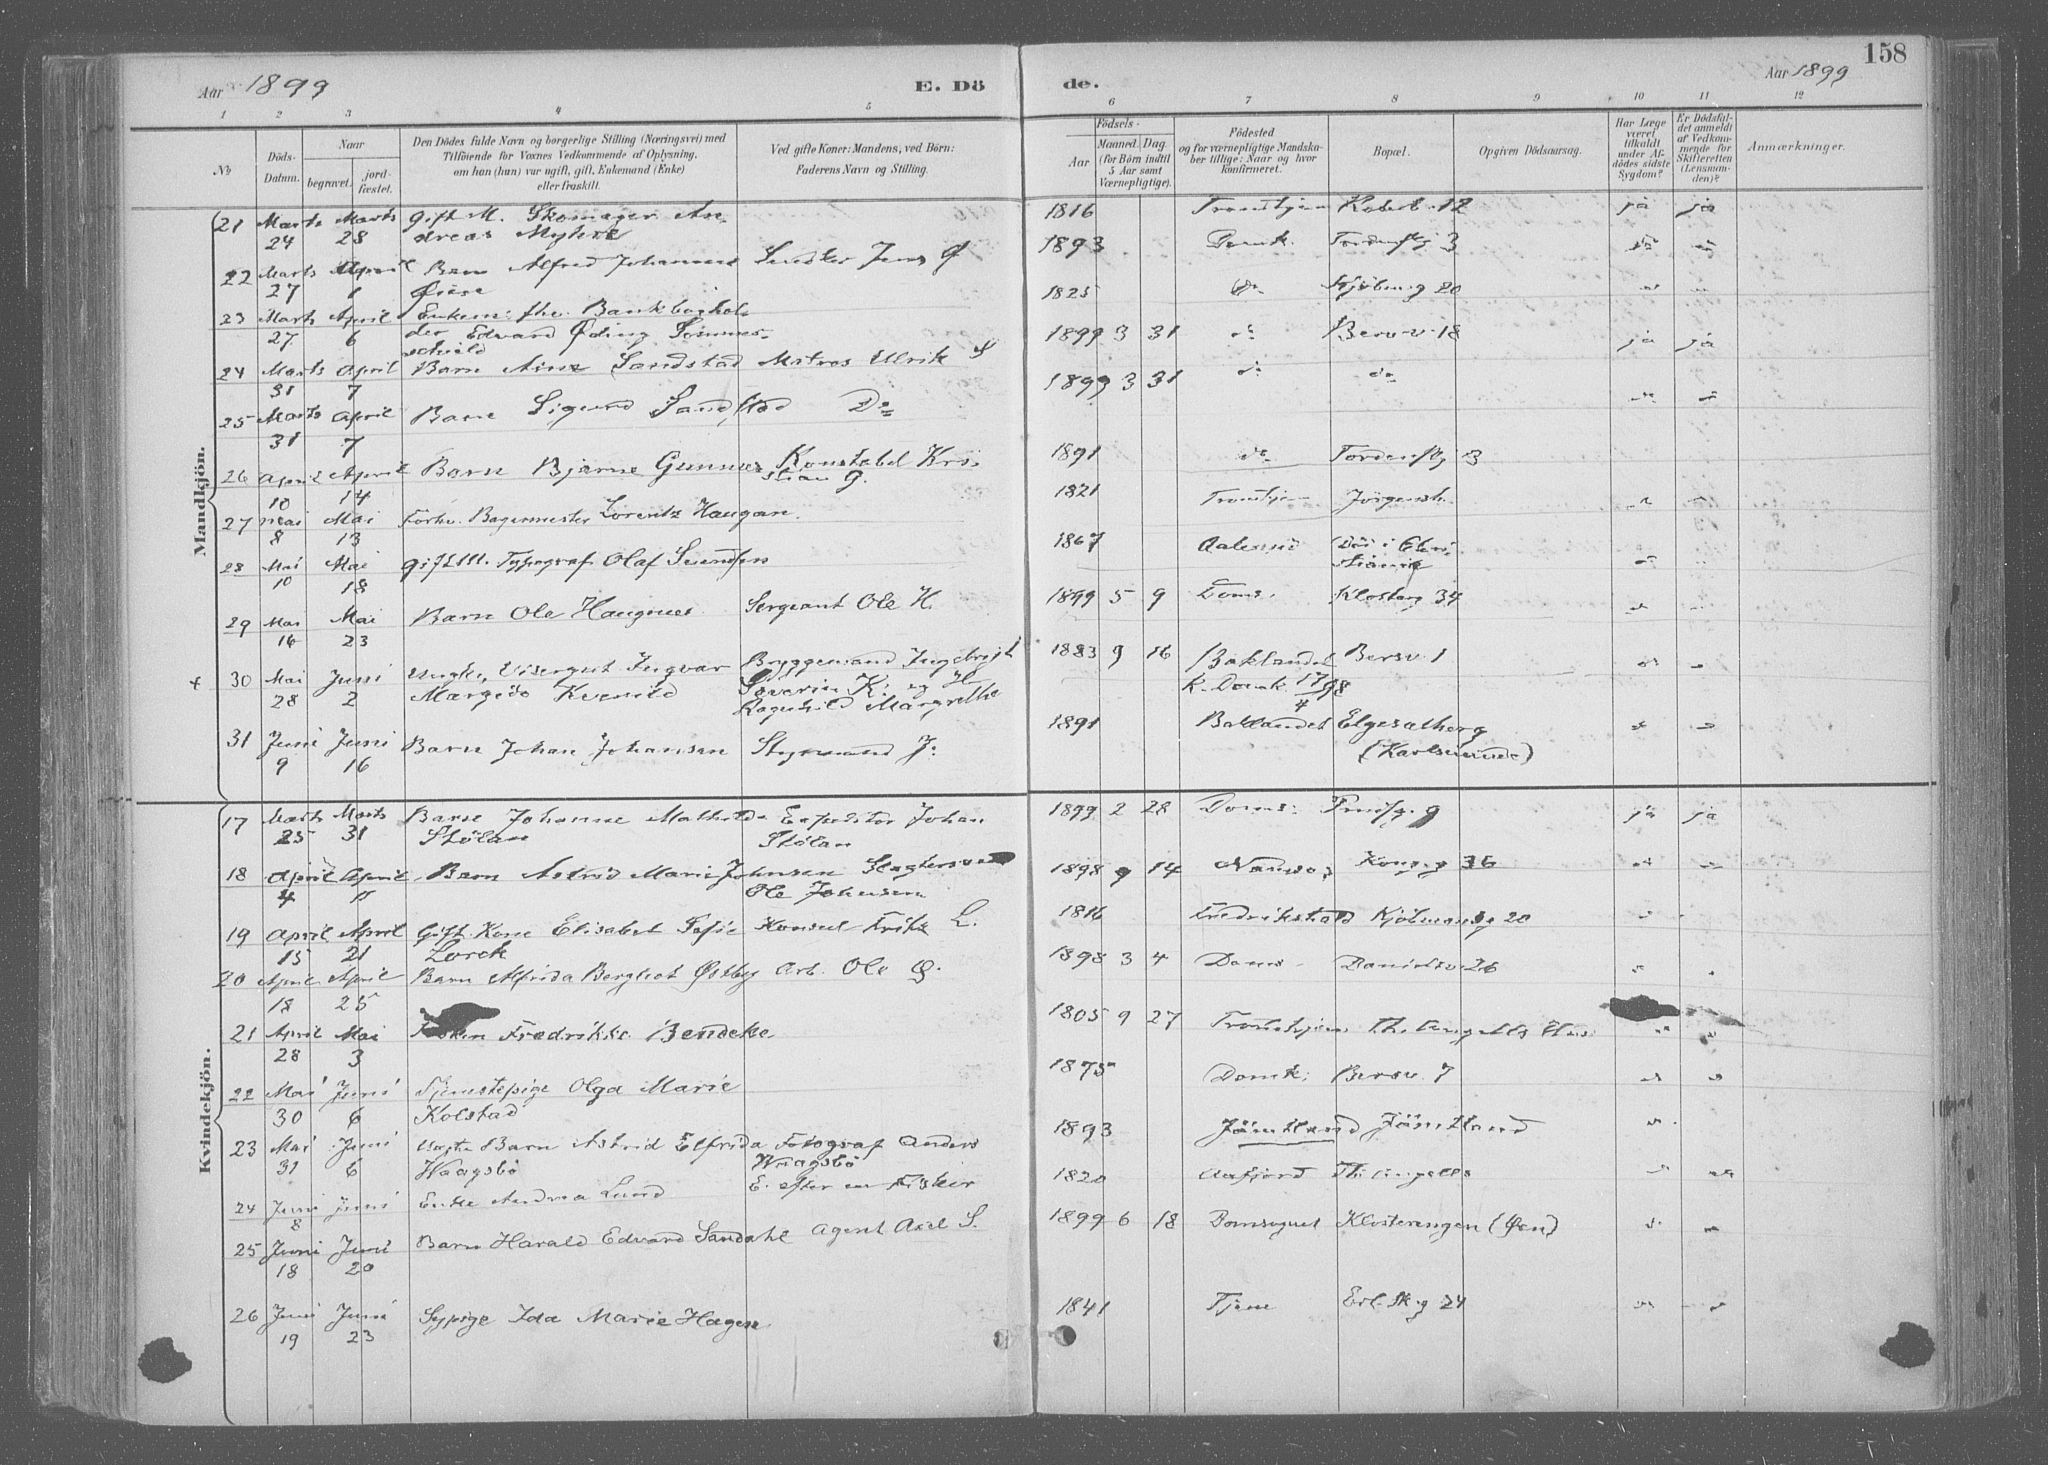 158
Aar 1899 E. Dö
de. Aar 1899
1 2 3 4 5 6 7 8 9 10 11 12
No
Döds-Datum.
Naar
begravet. jord-fæstet.
Den Dödes fulde Navn og borgerlige Stilling (Næringsvei) med
Tilföiende for Voxnes Vedkommende af Oplysning,
om han (hun) var ugift, gift, Enkemand (Enke)
eller fraskilt.
Ved gifte Koner: Mandens, ved Börn:
Faderens Navn og Stilling.
Födsels-
Aar
Maaned. Dag.
(for Börn indtil
5 Aar samt
Værnepligtige).
Födested
og for værnepligtige Mandska-
ber tillige: Naar og hvor
konfirmeret.
Bopæl.
Opgiven Dödsaarsag.
Har Læge
været
tilkaldt
under Af-
dödes sidste
Sygdom?
Er Dödsfal-
det anmeldt
af Vedkom-
mende for
Skifteretten
(Lensman-
den)?
Anmærkninger.
Mandkjön.
21 Marts 24 Marts 28 Gift M. Skomager An-
dreas Myhre 1816 Trondhjem 12 ja ja
22 Marts 27 April 1 Barn Alfred Johannes Jens Ø
Øiise 1893 Domk. Tordenskj 3
23 Marts 27 April 6 Enkem. fhv. Bankboghol-
der Edvard Øding Sommer-
schield 1825 do 20
24 Marts 31 April 7 Barn Sandstad Matros Ulrik S 1899 3 31 do Bersv. 18 ja ja
25 Marts 31 April 7 Barn Sigurd Sandstad Do 1899 3 31 do do
26 April 10 April 14 Barn Bjarne Gunnes Konstabel Kri-
stian G. 1891 do Tordenskj 3
27 Mai 8 Mai 13 Forhv. Bagermester Lorentz Haugan. 1821 Trondhjem
28 Mai 10 Mai 18 gift M. Typograf Olaf 1867 Aalesund (Död i Chri-
stiania
29 Mai 16 Mai 23 Barn Ole Haugnes Sergeant Ole H. 1899 5 9 Doms. Klosterg 34
+ 30 Mai 28 Juni 2 Ungk. Visergut Ingvar Bryggemand Ingebrigt
Margido Kvenild Severin K. og H
Ragnhild Margrethe 1883 9 16 Baklandet Bersv. 1
K. Domk. 17/4 98
31 Juni 9 Juni 16 Barn Johan Johansen Styrmand J. 1891 Baklandet Elgesætherg
(Karlsminde)
Kvindekjön.
17 Marts 25 Marts 31 Barn Johanne Mathilde Expeditör Johan
Stölan Stölan 1899 2 28 Doms. 9 ja ja
18 April 4 April Barn Astrid Marie Johnsen
Ole Johnsen 1898 9 14 Namsos Kong. g 36
19 April 15 April 21 Gift Kone Elisabet Sofie Konsul Fritz L.
Lorck 1816 Fredrikstad Kjölmansg 20
20 April 18 April 25 Barn Alfrida Bergliot Østby Arb. Ole Ø. 1898 3 4 Doms. Danielsv. 26
21 April 28 Mai 3 Fredrikke Bendeke 1805 9 27 Trondhjem Th. Angells Hus
22 Mai 30 Juni 6 Tjenstepige Olga Marie
Kolstad 1875 Domk. Bersv. 7
23 Mai 31 Juni 6 Barn Astrid Elfrida Fotograf Anders
Waagsbö Waagsbö 1893 Jämtland Jämtland
24 Juni 8 juni Enke Andrea Lund E. efter en Fisker 1820 Aafjord Th. Angells
25 Juni 18 Juni 20 Barn Harald Edvard Sandahl Agent Axel S. 1899 6 18 Domsognet Klosterengen (Øen)
26 Juni 19 Juni 23 Sypige Ida Marie Hagen 1841 Erl. Sk. g 24